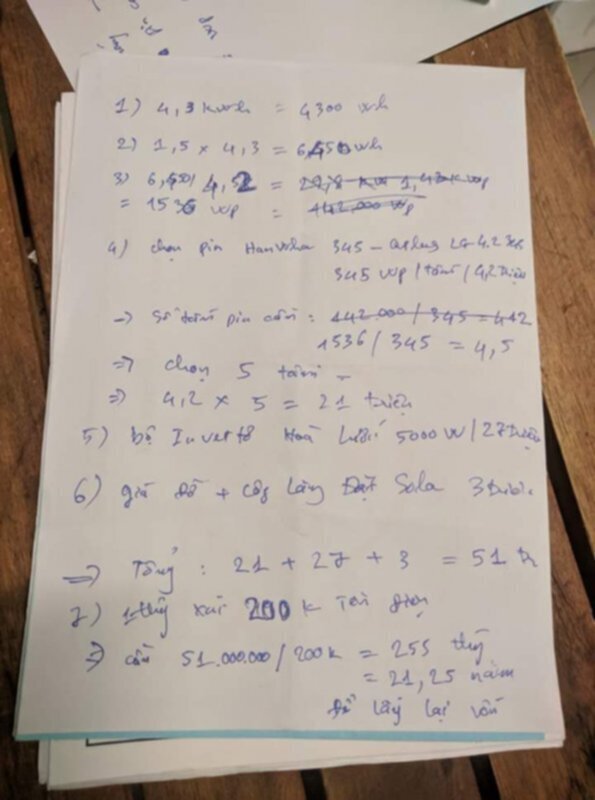 1) 4,3 kwh = 4300 wh
2) 1,5 x 4,3 = 6,450 wh
3) 6,450 / 4,2 =
= 1536 wp =
4) chọn pin Hanwha 345 - 
345 wp / tấm / 4,2 triệu
-> số tấm pin cần : 142.000 / 345 = 412
1536 / 345 = 4,5
=> chọn 5 tấm -
=> 4,2 x 5 = 21 triệu
5) bộ Inverto Hoà lưới 5000 W / 27 triệu
6) giá đỡ + công lắp đặt Sola 3 triệu
=> Tổng : 21 + 27 + 3 = 51 tr
7) 1 thg xài 200 k Tiền điện
=> cần 51.000.000 / 200k = 255 thg
= 21,25 năm
để lấy lại vốn